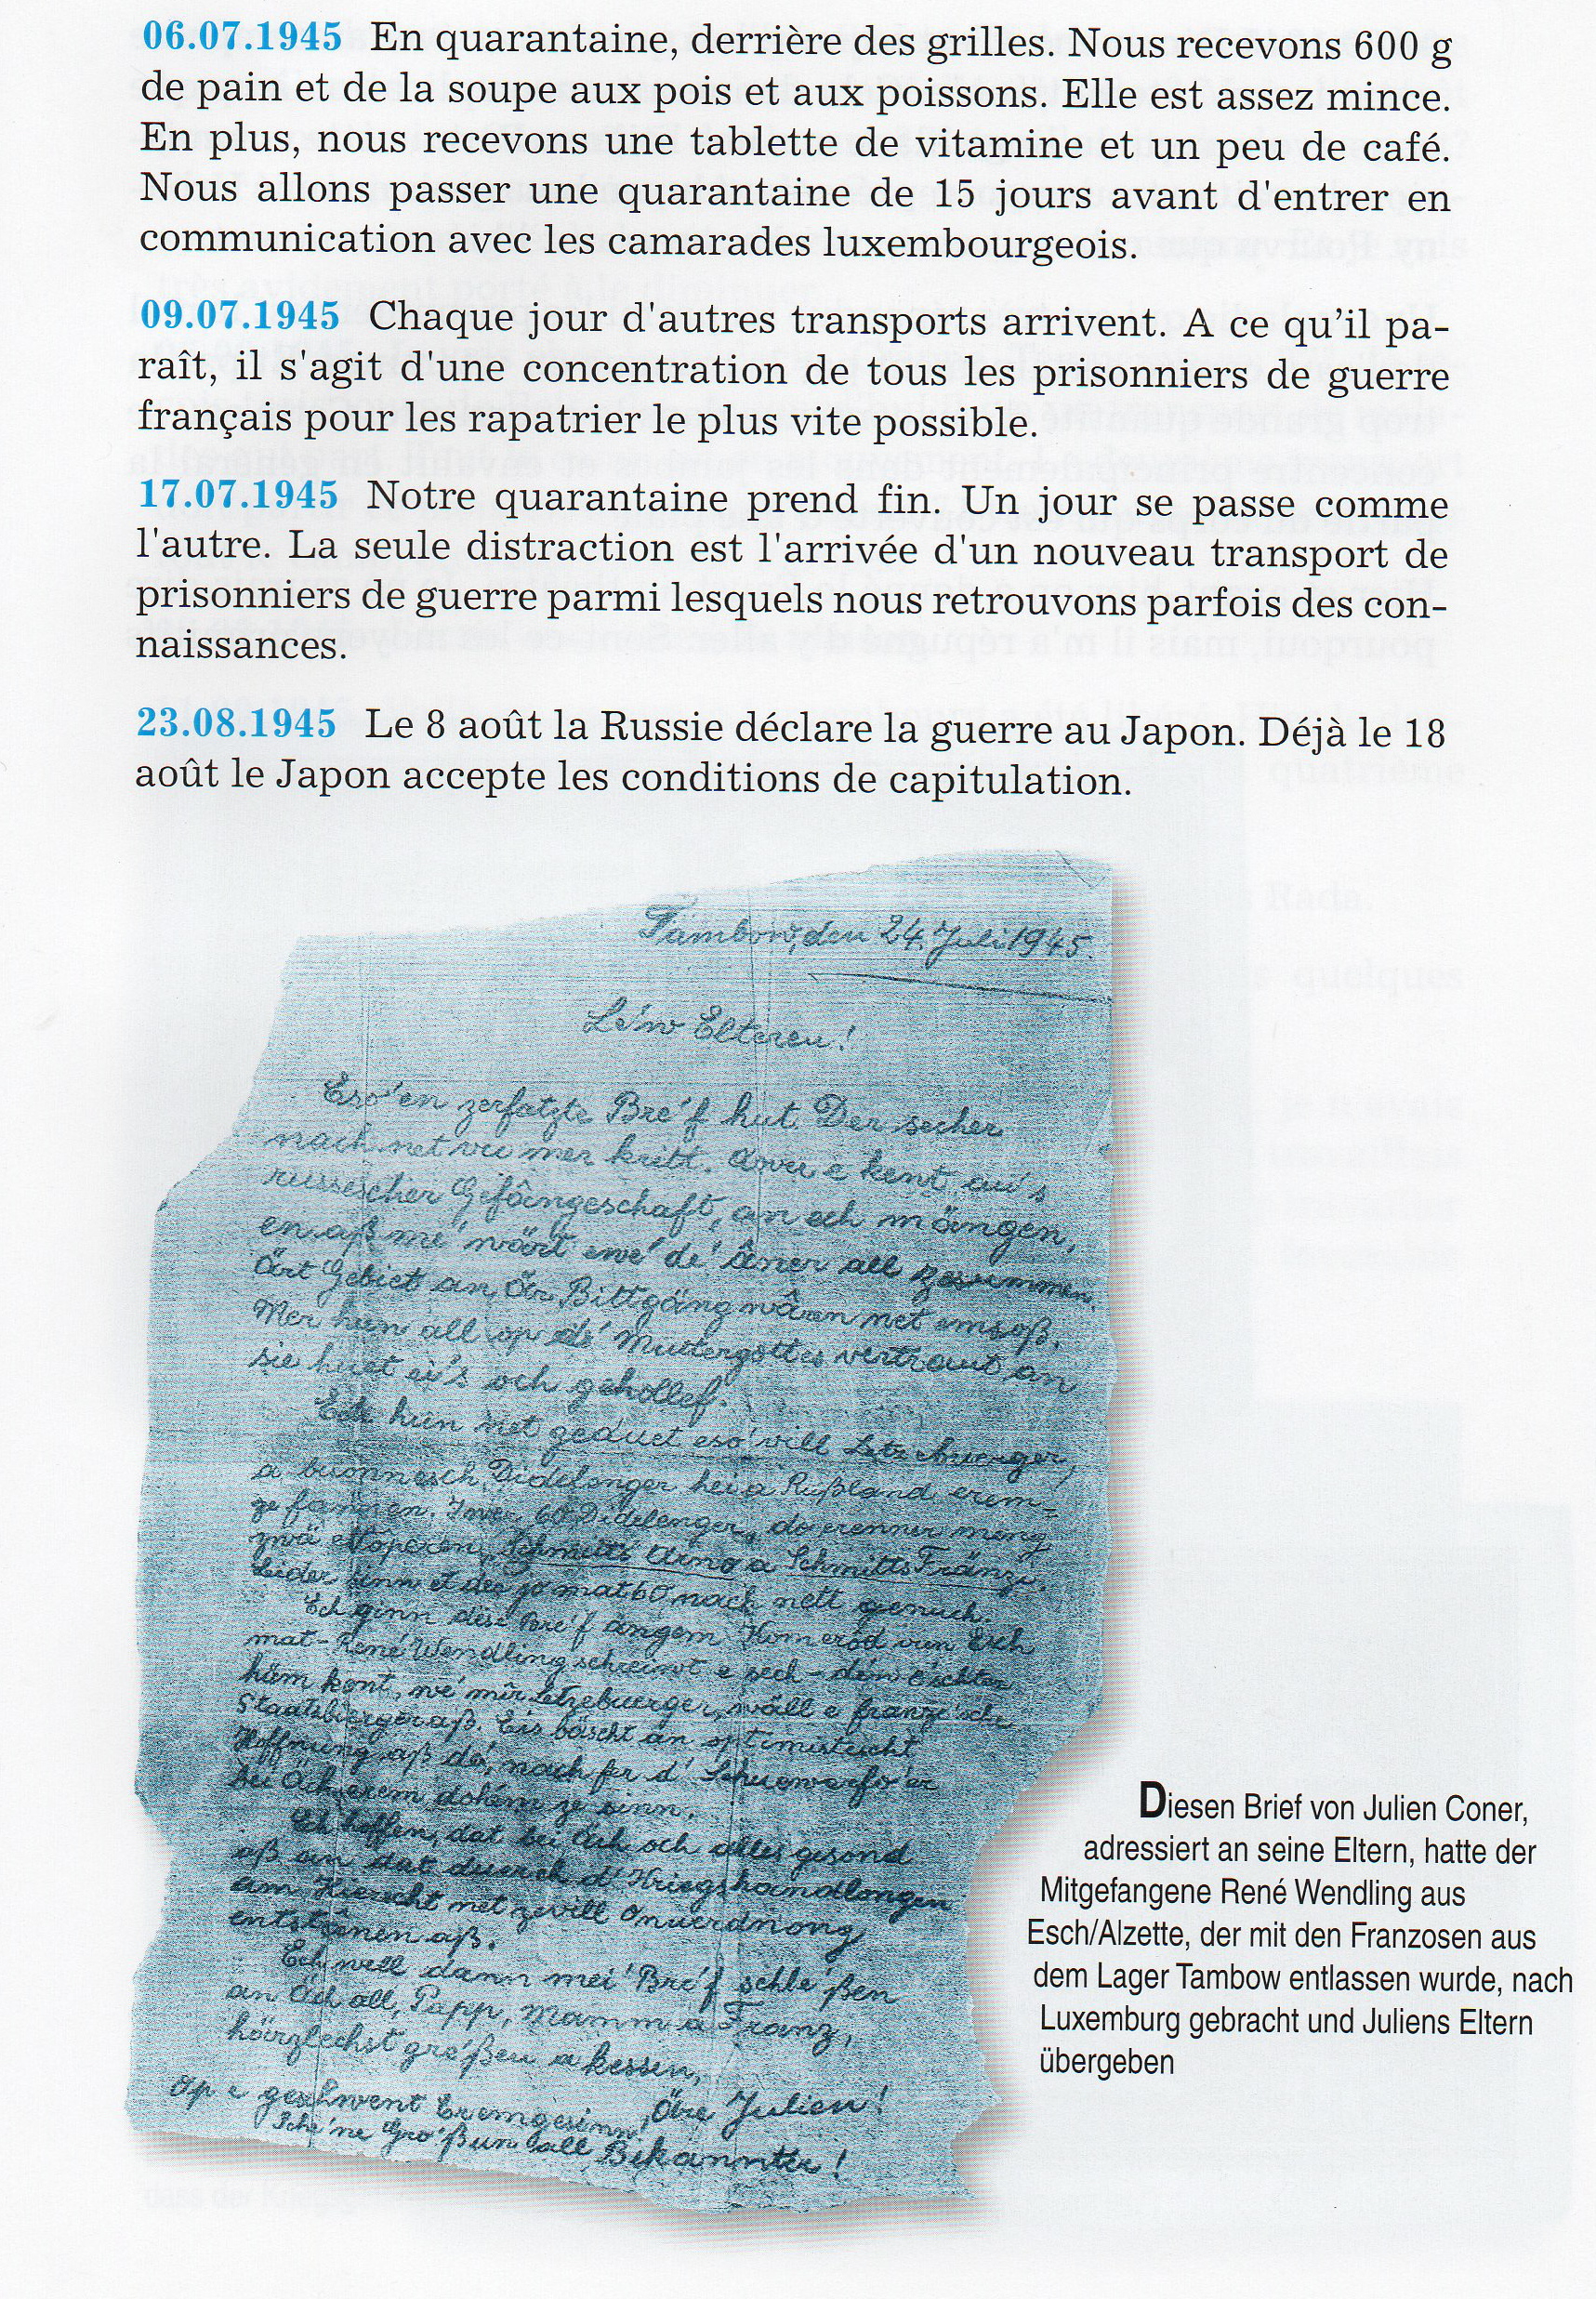 06.07.1945 En quarantaine, derrière des grilles. Nous recevons 600 g
de pain et de la soupe aux pois et aux poissons. Elle est assez mince.
En plus, nous recevons une tablette de vitamine et un peu de café.
Nous allons passer une quarantaine de 15 jours avant d'entrer en
communication avec les camarades luxembourgeois.
09.07.1945 Chaque jour d'autres transports arrivent. A ce qu’il pa-
raît, il s'agit d'une concentration de tous les prisonniers de guerre
français pour les rapatrier le plus vite possible.
17.07.1945 Notre quarantaine prend fin. Un jour se passe comme
l'autre. La seule distraction est l'arrivée d'un nouveau transport de
prisonniers de guerre parmi lesquels nous retrouvons parfois des con-
naissances.
23.08.1945 Le 8 août la Russie déclare la guerre au Japon. Déjà le 18
août le Japon accepte les conditions de capitulation.
Tambow, den 24. Juli 1945.
Le'w Elteren!
Eso' en zerfatzte Bre'f hut Der secher
nach net vu mer kritt. Awer e kent au's
russescher Gefângeschaft, an ech mängen,
en aß me' wäärt ewe' de' âner all zesummen.
Ärt Gebiet an Är Bittgäng wâren net emsoß.
Mer hun all op de' Muttergottes vertraut an
sie huet ei's och gehollef.
Ech hun net geduet eso' vill Letzebuerger,
a besonnesch Didelenger hei a Rußland erem-
ze fannen. Iwer 60 Didelenger, do ennner meng
zwä Noperen, Schmitts Arno a Schmitts Fränz.
Leider sinn et der jo mat 60 nach nett genuch.
Ech ginn dëse Bre'f angem Komerod vun Esch
mat - René Wendling schreiwt e sech - den e'chter
häm kënt, we' mir Letzebuerger, wäll e franze'sche
Staatsbierger aß. Eis bäscht an optimistescht
Hoffnung aß de', nach fir d' Schuewerfo'er
bei Äch erem dohém ze sinn.
Ech hoffen, dat bei Äch och alles gesond
aß an dat duerch d' Kriegshandlongen
am Hierscht net zevill Onuerdnong
entstânen aß.
Ech well dann mei' Bre'f schle'ßen
an Äch all, Papp, Mamm a Franz,
häerzlechst gre'ßen a kessen,
Äre Julien!
Op e geschwent Eremgesinn!
Sche'ne Gro'ß un all Bekannter!
Diesen Brief von Julien Coner,
adressiert an seine Eltern, hatte der
Mitgefangene René Wendling aus
Esch/Alzette, der mit den Franzosen aus
dem Lager Tambow entlassen wurde, nach
Luxemburg gebracht und Juliens Eltern
übergeben